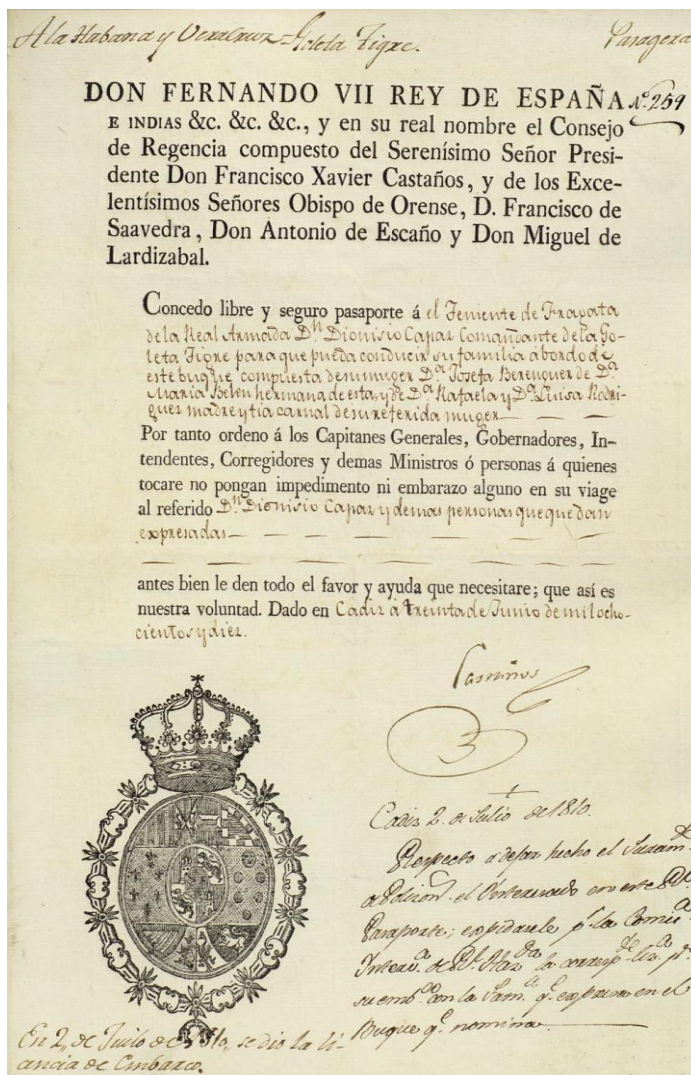 A la Habana y Veracruz - Goleta Tigre. Pasagera
DON FERNANDO VII REY DE ESPAÑA Nº 259
E INDIAS &c. &c. &c., y en su real nombre el Consejo
de Regencia compuesto del Serenísimo Señor Presi-
dente Don Francisco Xavier Castaños, y de los Exce-
lentísimos Señores Obispo de Orense, D. Francisco de
Saavedra, Don Antonio de Escaño y Don Miguel de
Lardizabal.
Concedo libre y seguro pasaporte á el Teniente de Fragata
de la Real Armada Dn Dionisio Capaz Comandante de la Go-
leta Tigre para que pueda conducir su familia abordo de
este buque compuesta de su muger Da Josefa Berenguer de Da
Maria Belen hermana de esta, y de Da Rafaela y Da Luisa Rodri-
guez madre y tia carnal de su referida muger
Por tanto ordeno á los Capitanes Generales, Gobernadores, In-
tendentes, Corregidores y demas Ministros ó personas á quienes
tocare no pongan impedimento ni embarazo alguno en su viage
al referido Dn Dionisio Capaz y demas personas que quedan
expresadas
antes bien le den todo el favor y ayuda que necesitare; que así es
nuestra voluntad. Dado en Cadiz á treinta de Junio de mil ocho-
cientos y diez.
Castaños
Cadiz 2 de Julio de 1810.
Respecto a dejar hecho el Juram.to
el en este Rl
Pasaporte; expidasele pr la
de Rl Haz.da la corresp.te liz.a pa
su emb.o con la fam.a qe expresa en el
Buque qe nomina.
En 2 de Julio de 1810, se dio la li-
cencia de Embarco.